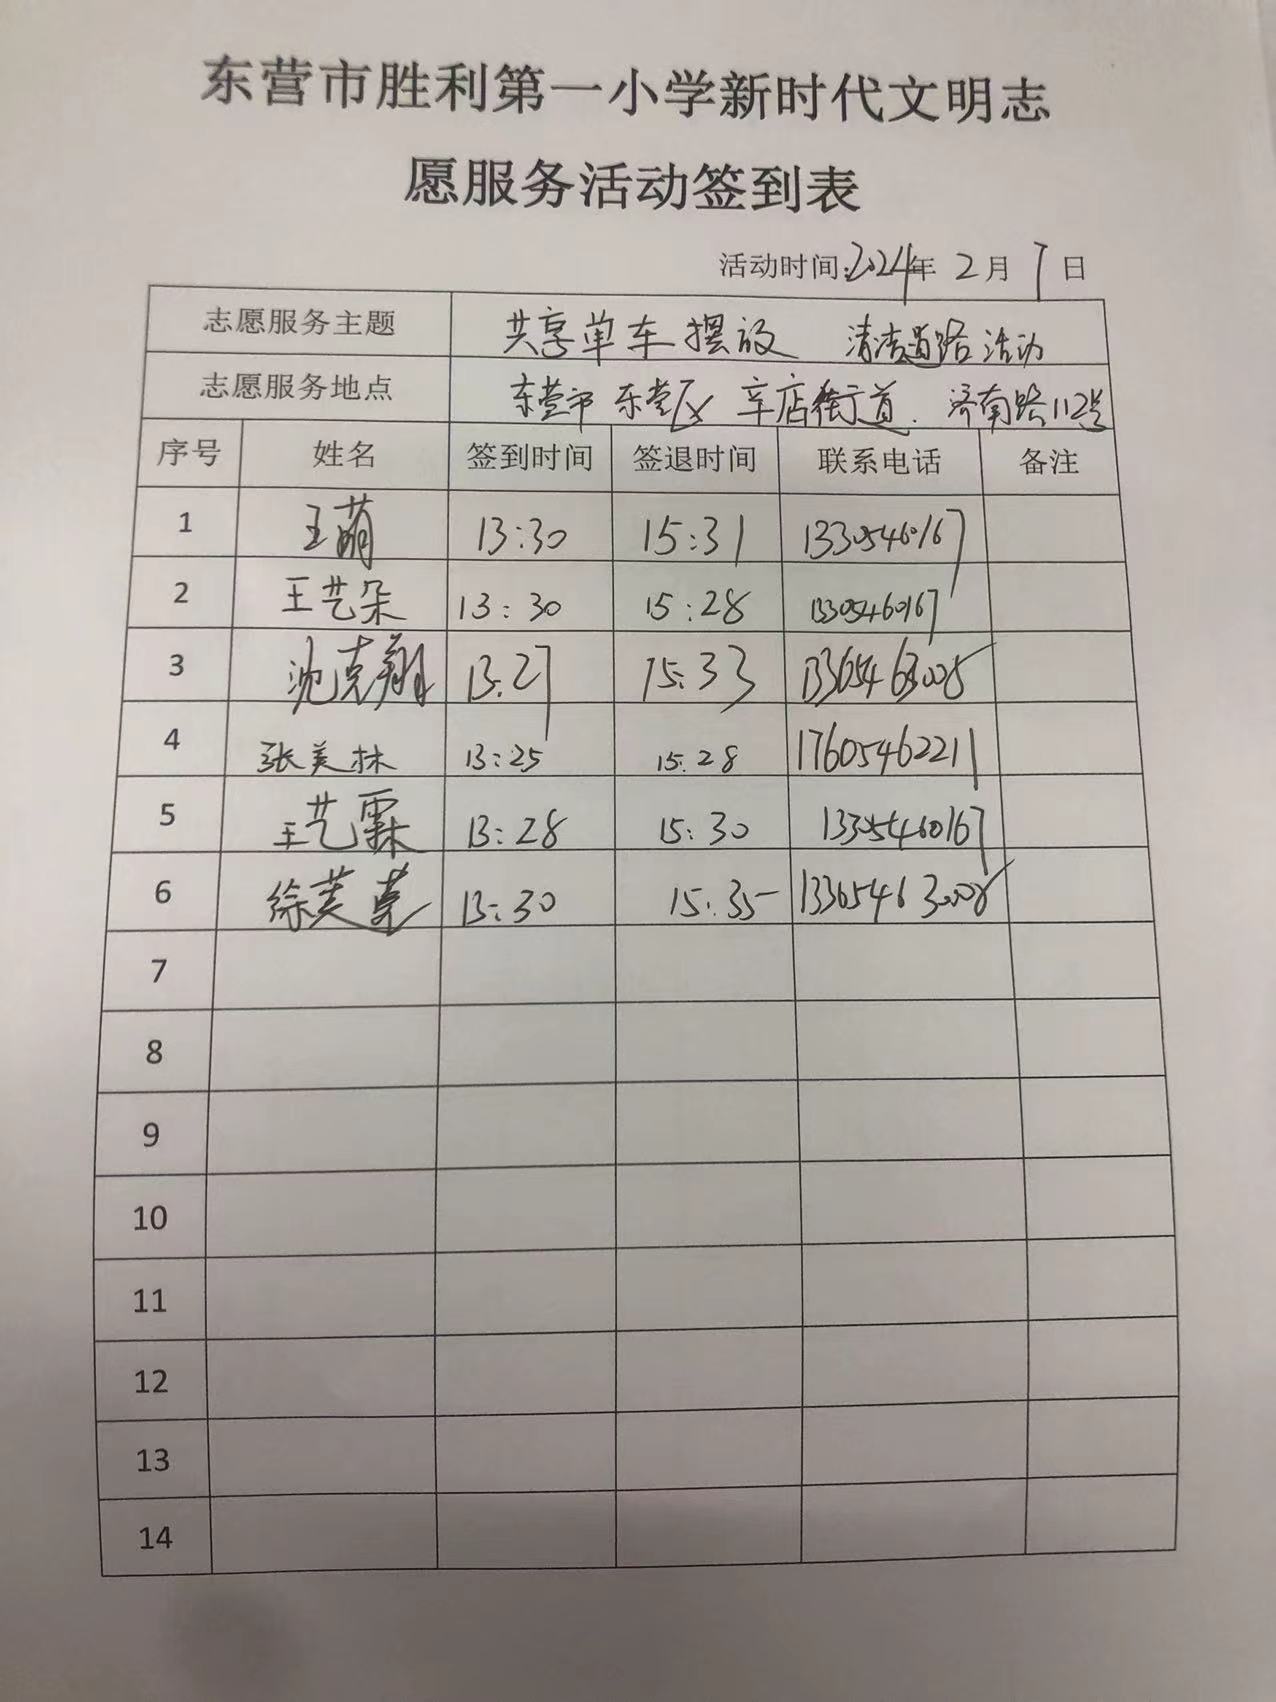 东营市胜利第一小学新时代文明志
愿服务活动签到表
活动时间:2024年 2 月 7 日
志愿服务主题 共享单车摆放 清洁道路活动
志愿服务地点 东营市 东营区 辛店街道. 济南路112号
序号 姓名 签到时间 签退时间 联系电话 备注
1 王萌 13:30 15:31 13305460167
2 王艺朵 13:30 15:28 13305460167
3 沈克翔 13:27 15:33
4 张美林 13:25 15:28 17605462211
5 王艺霖 13:28 15:30 13305460167
6 13:30 15:35
7
8
9
10
11
12
13
14